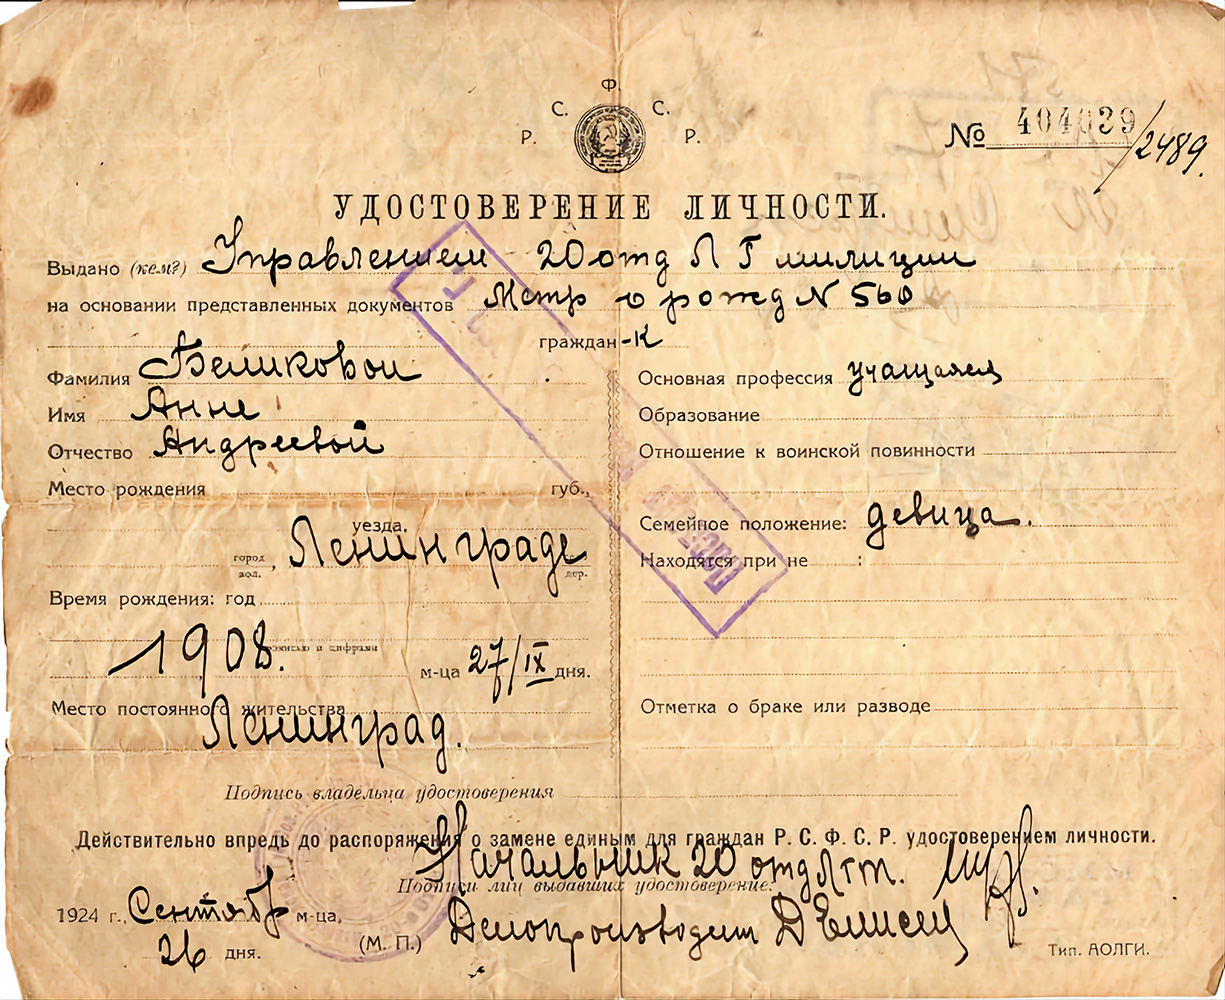 Р. С. Ф. С. Р.
№ 404039/2489.
УДОСТОВЕРЕНИЕ ЛИЧНОСТИ.
Выдано (кем?) Управлением 20 отд Л Г милиции
на основании представленных документов Мтр о рожд N 560
граждан-к
Фамилия Беликовой
Имя Анне
Отчество Андреевой
Место рождения губ.,
уезда,
город
вол. , Ленинграде дер.
Время рождения: год
1908. прописью и цифрами
м-ца 27/IX дня.
Место постоянного жительства
Ленинград.
Основная профессия учащаяся
Образование
Отношение к воинской повинности
Семейное положение: девица.
Находятся при не :
Отметка о браке или разводе
Подпись владельца удостоверения
Действительно впредь до распоряжения о замене единым для граждан Р. С. Ф. С. Р. удостоверением личности.
Начальник 20 отд Лгм.
Подписи лиц выдавших удостоверение:
1924 г., Сентябр м-ца,
26 дня.
(М. П.) Делопроизводит
Тип. АОЛГИ.